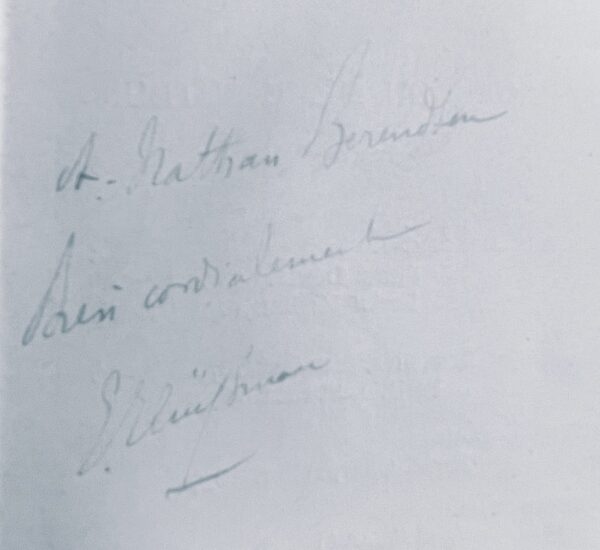 A. Nathan Berendsen
Bien cordialement